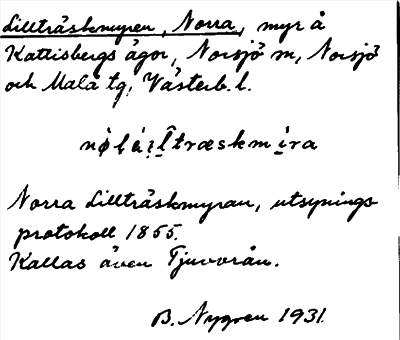 Lillträskmyren, Norra, myr å
Kattisbergs ägor, Norsjö sn, Norsjö
och Malå tg, Västerb. l.
Norra Lillträskmyran, utsynings
protokoll 1855.
Kallas även Tjuvvrån.
B. Nygren 1931.